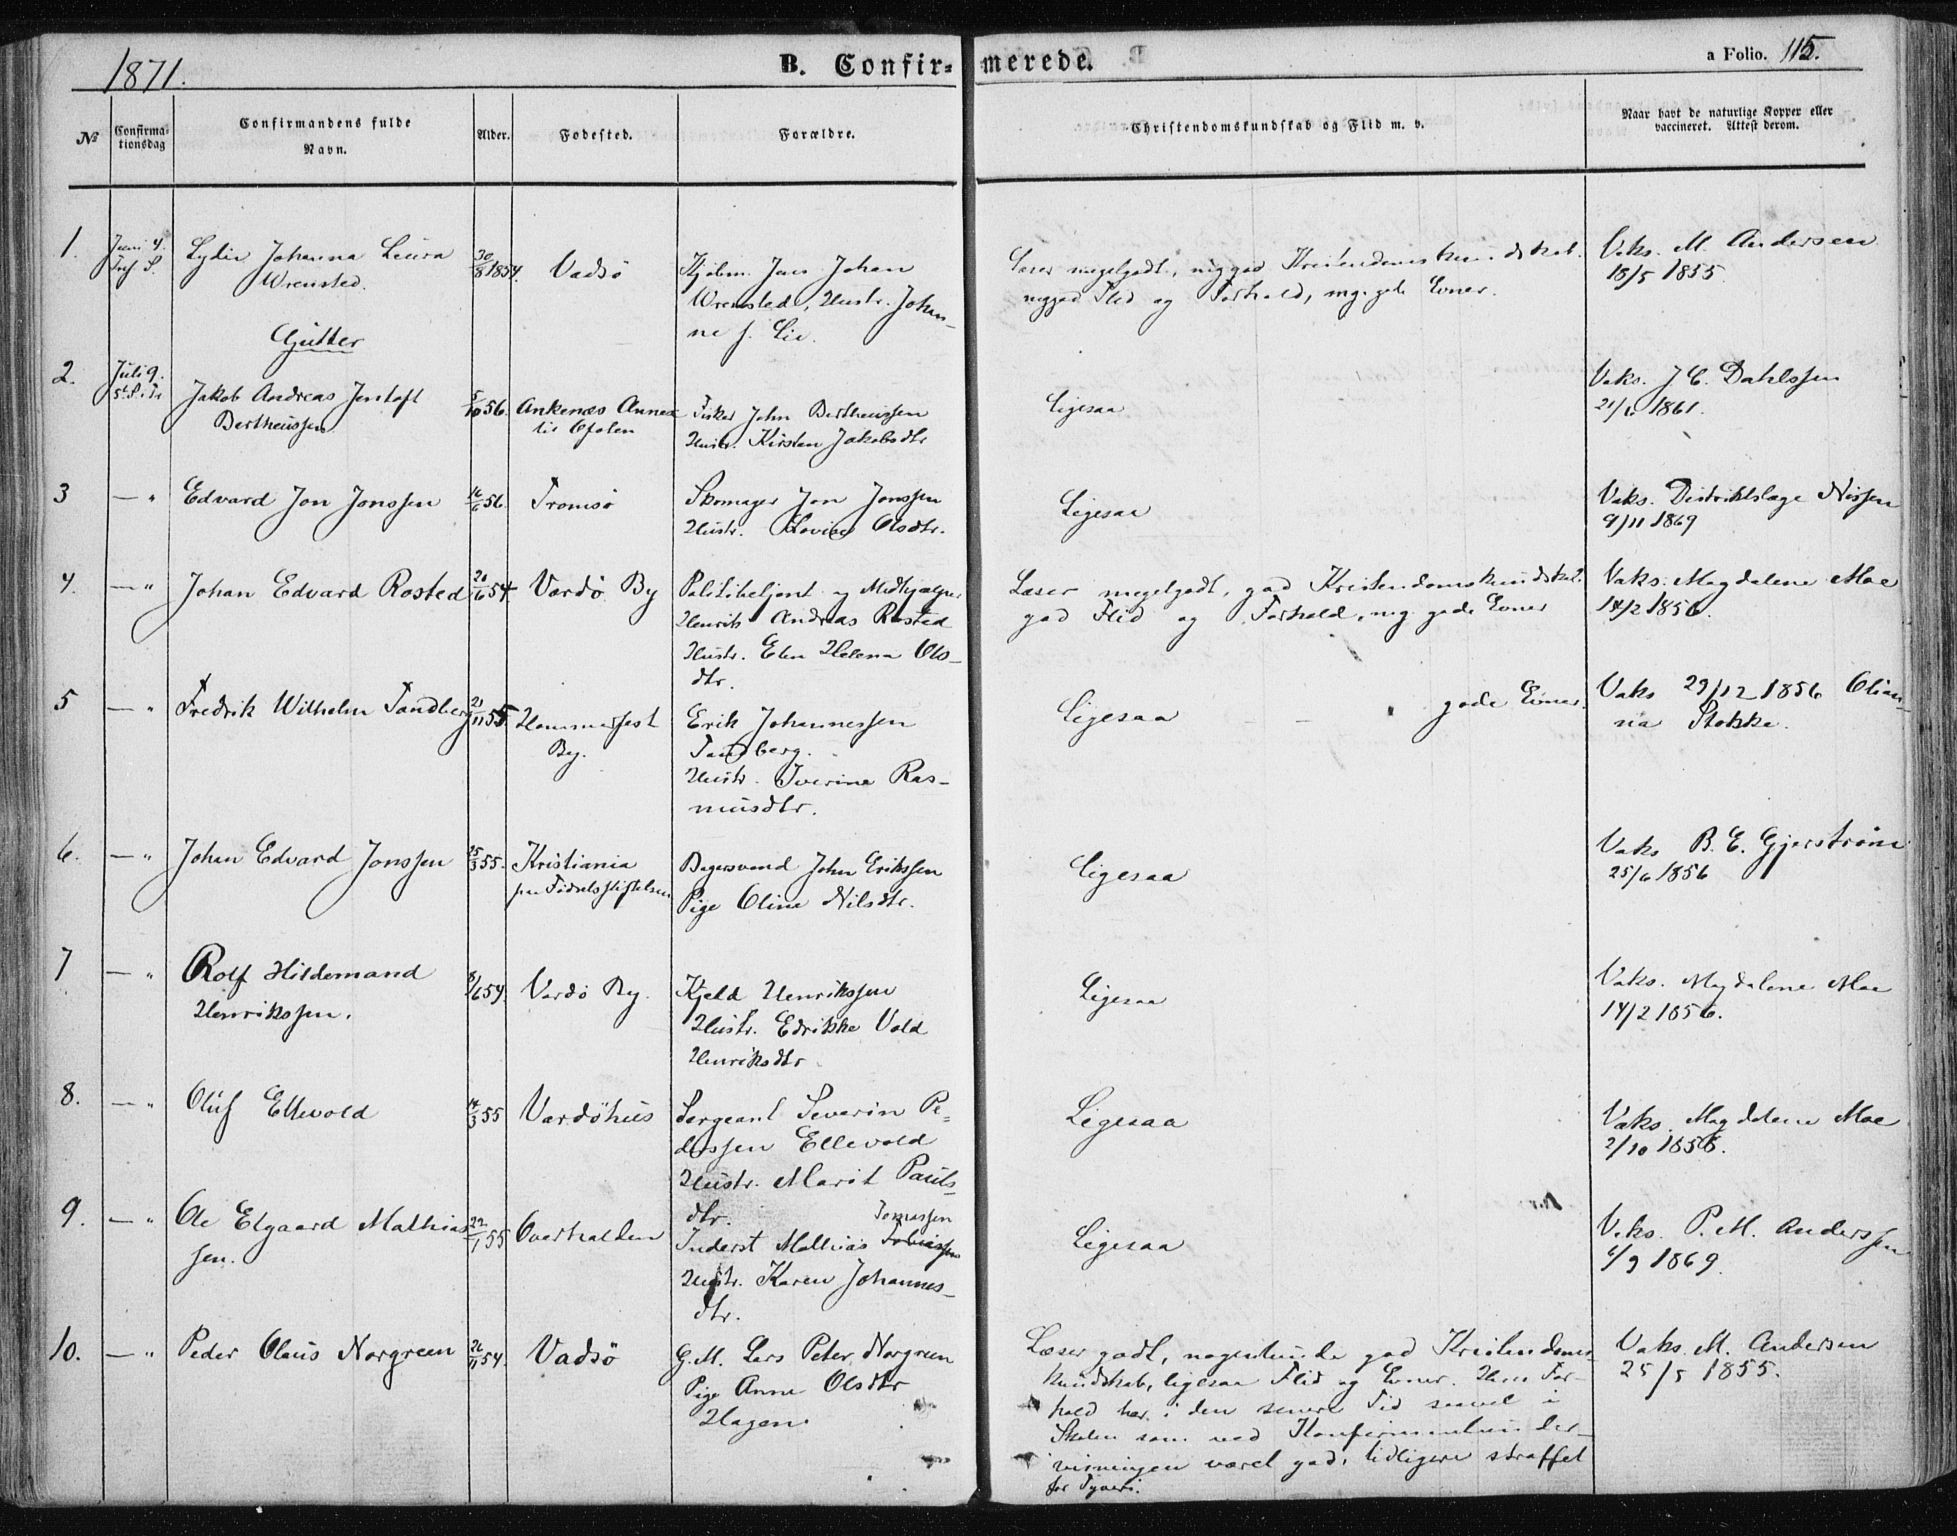 1871.
B. Confir-
merede.
a Folio. 115.
No
Confirma-
tionsdag
Confirmandens fulde
Navn.
Alder.
Fødested.
Forældre.
Christendomskundskab og Flid m. v.
Naar havt de naturlige Kopper eller
vaccineret. Attest derom.
1.
Juni 4.
S.
Lydia Johanna Laura
Wrensted.
30/8 1854.
Vadsø
Kjøbm. Jens Johan
Wrensted, Hustr. Johan-
ne f. Lie.
Læser megetgodt, meg god Kristendomskundskab.
meg god Flid og Forhold, meg. gode Evner.
Vaks. M. Andersen
18/5 1855
Gutter
2.
Juli 9.
Jakob Andreas Jentoft
Bertheussen
5/10 56.
Ankenæs Annex
til Ofoten
Fisker John Bertheussen
Hustr. Kirsten Jakobsdtr
Ligesaa
Vaks. J C. Dahlssen
21/6 1861.
3
— "
Edvard Jon Jonssen
16/6 56.
Tromsø
Skomager Jon Jonssen
Hustr. Lovise Olsdtr.
Ligesaa
Vaks. Distriktslæge Nissen
9/11 1869
4.
— "
Johan Edvard Rosted
20/6 54.
Vardø By
Politibetjent og Medhjælper
Henrik Andreas Rosted
Hustr. Elen Helena Ols-
dtr.
Læser megetgodt, god Kristendomskundskab.
god Flid og Forhold, meg gode Evner
Vaks. Magdalene Moe
14/2 1856.
5
— "
Fredrik Wilhelm Tandberg
21/11 55
Hammerfest
By.
Erik Johannessen
Tandberg.
Hustr. Iverine Ras-
musdtr.
Ligesaa — — gode Evner.
Vaks 29/12 1856 Olian-
na Stokke.
6.
— "
Johan Edvard Jonssen
25/3 55.
Kristiania
paa Fødselsstiftelsen
Bagersvend John Erikssen
Pige Oline Nilsdtr.
Ligesaa
Vaks B. E. Gjerstrøm
25/6 1856
7
— "
Rolf Hildemand
Henrikssen.
8/6 54.
Vardø By.
Kjeld Henrikssen
Hustr. Edrikke Vold
Henriksdtr
Ligesaa
Vaks. Magdalene Moe
14/2 1856.
8.
— "
Oluf Ellevold
14/3 55
Vardøhus
Sergeant Severin Pe-
derssen Ellevold
Hustr. Marit Pauls-
dtr.
Ligesaa
Vaks. Magdalene Moe
2/10 1856.
9.
— "
Ole Elgaard Mathias
sen.
22/1 55
Overhalden
Tomassen
Inderst Mathias Tobiassen
Hustr. Karen Johannes-
dtr.
Ligesaa
Vaks. P. M. Anderssen
6/9 1869.
10.
— "
Peder Olaus Norgreen
26/11 54.
Vadsø
G. M. Lars Peter Norgreen
Pige Anne Olsdtr
Hagen.
Læser godt, nogenlunde god Kristendoms-
kundskab, ligesaa Flid og Evner. Hans For-
hold har i den senere Tid saavel i
Skolen som ved Konfirmationsunder-
visningen været god, tidligere straffet
for Tyveri.
Vaks. M. Andersen
25/5 1855.